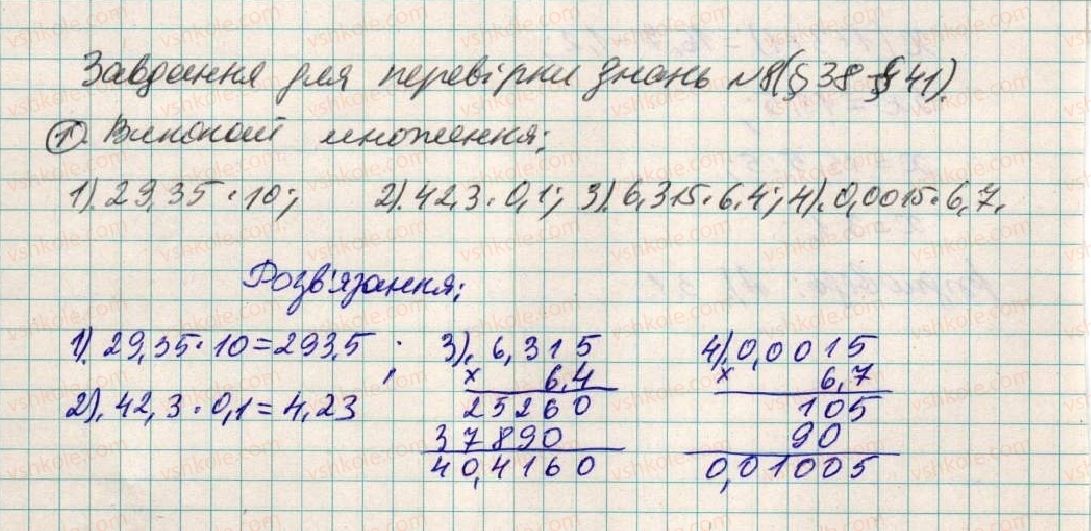 Завдання для перевірки знань №8 (§38-§41).
1. Виконай множення:
1). 29,35·10; 2). 42,3·0,1; 3). 6,315·6,4; 4). 0,0015·6,7.
Розв'язання:
1). 29,35·10=293,5;
2). 42,3·0,1=4,23
3). 6,315
x 6,4
25260
37890
40,4160
4). 0,0015
x 6,7
105
90
0,01005